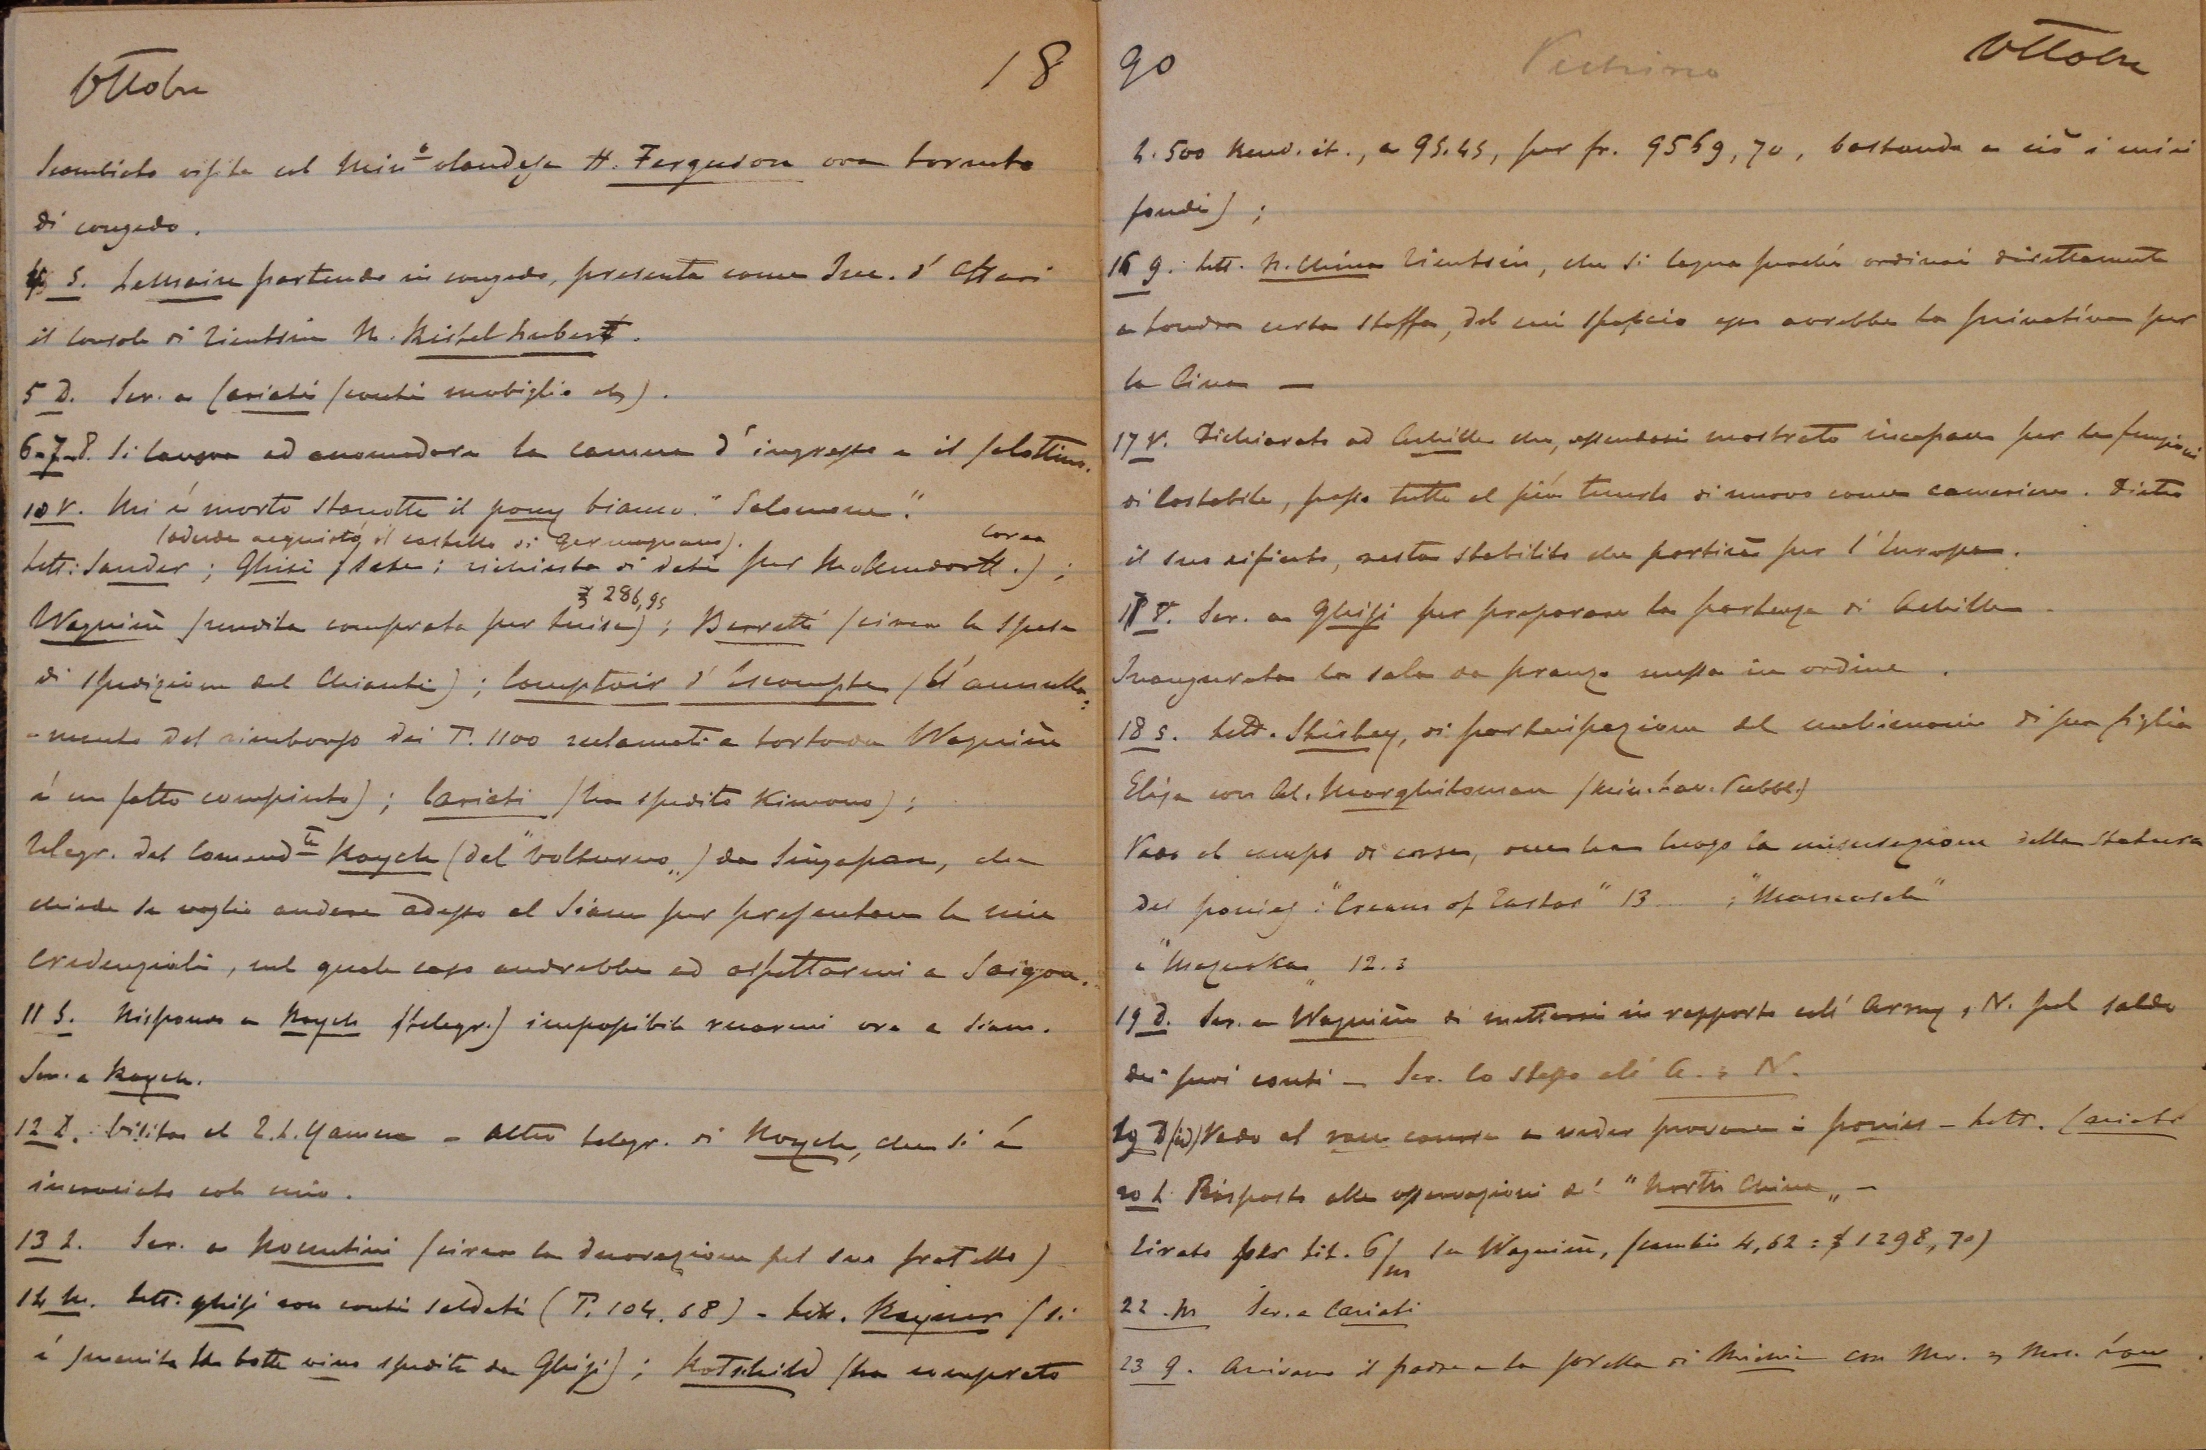 Ottobre 18
Scambiato visita col Min.º olandese H. Ferguson ora tornato
di congedo.
4 S. Lemaire partendo in congedo, presenta come Inc. d'Affari
il console di Tientsin M. Ristelhubert.
5 D. Scr. a Cariati (conti mobiglio etc).
6-7-8. Si lavora ad accomodare la camera d'ingresso e il salottino.
10 V. Mi è morto stanotte il pony bianco "Salomone".
(Adende acquistò il castello di Germagnano). Corea
Lett: Sander; Ghisi (sete; richiesta di dati per Mollendorff.);
$ 286,95
Wagnière (rendita comprata per Luisa); Berretti (circa le spese
di spedizione del Chianti); Comptoir d'Escompte (l'annulla-
-mento del rimborso dei T. 1100 reclamati a torto da Wagnière
è un fatto compiuto); Cariati (ha spedito Kimono);
Telegr. del Comandte Raych (del "Volturno") da Singapore, che
chiede se voglio andare adesso al Siam per presentare le mie
credenziali, nel quale caso andrebbe ad aspettarmi a Saigon.
11 S. Risponso a Raych (telegr.) impossibile recarmi ora a Siam.
Scr. a Raych.
12 D. Visita al T.L. Yamen - Altro telegr. di Raych, che si è
incrociato col mio.
13 L. Scr. a Nocentini (circa la decorazione pel suo fratello)
14 M. Lett. Ghisi con conti saldati (T. 104.68) - Lett. Rayner (si
è smarrita una botte vino spedita da Ghisi); Rotschild (ha comprato
90 Pechino Ottobre
L. 500 Rend. it., a 95.45, per fr. 9569,70, bastando a ciò i miei
fondi);
16 G. Lett. N. China Tientsin, che si lagna perchè ordinai direttamente
a Londra certa stoffa, del cui spaccio essa avrebbe la privativa per
la Cina —
17 V. Dichiarato ad Achille che, essendosi mostrato incapace per le funzioni
di Costabile, passa tutto al più tenerlo di nuovo come cameriere. Dietro
il suo rifiuto, resta stabilito che partirà per l'Europa.
17 V. Scr. a Ghisi per preparare la partenza di Achille.
Inaugurata la sala da pranzo messa in ordine.
18 S. Lett. Stirbey, di partecipazione del matrimonio di sua figlia
Elisa con Al. Marghiloman (Min. Lav. Pubbl.)
Vado al campo di corse, ove ha luogo la misurazione della statura
dei ponies: "Cream of Tartar" 13 ; "Mamasela"
e "Mazurka" 12.3
19 D. Scr. a Wagnière di mettersi in rapporto coll'Army & N. pel saldo
dei suoi conti — Scr. lo stesso all'A. & N.
19 D (id) Vado al race course a veder provare i ponies - Lett. Cariati
20 L. Risposto alle osservazioni d. "North China" —
Tirato per Lit. 6/m su Wagnière, (cambio 4,62 = $ 1298,70)
22. M Scr. a Cariati
23 G. Arrivano il padre e la sorella di Michie con Mr. & Mrs.